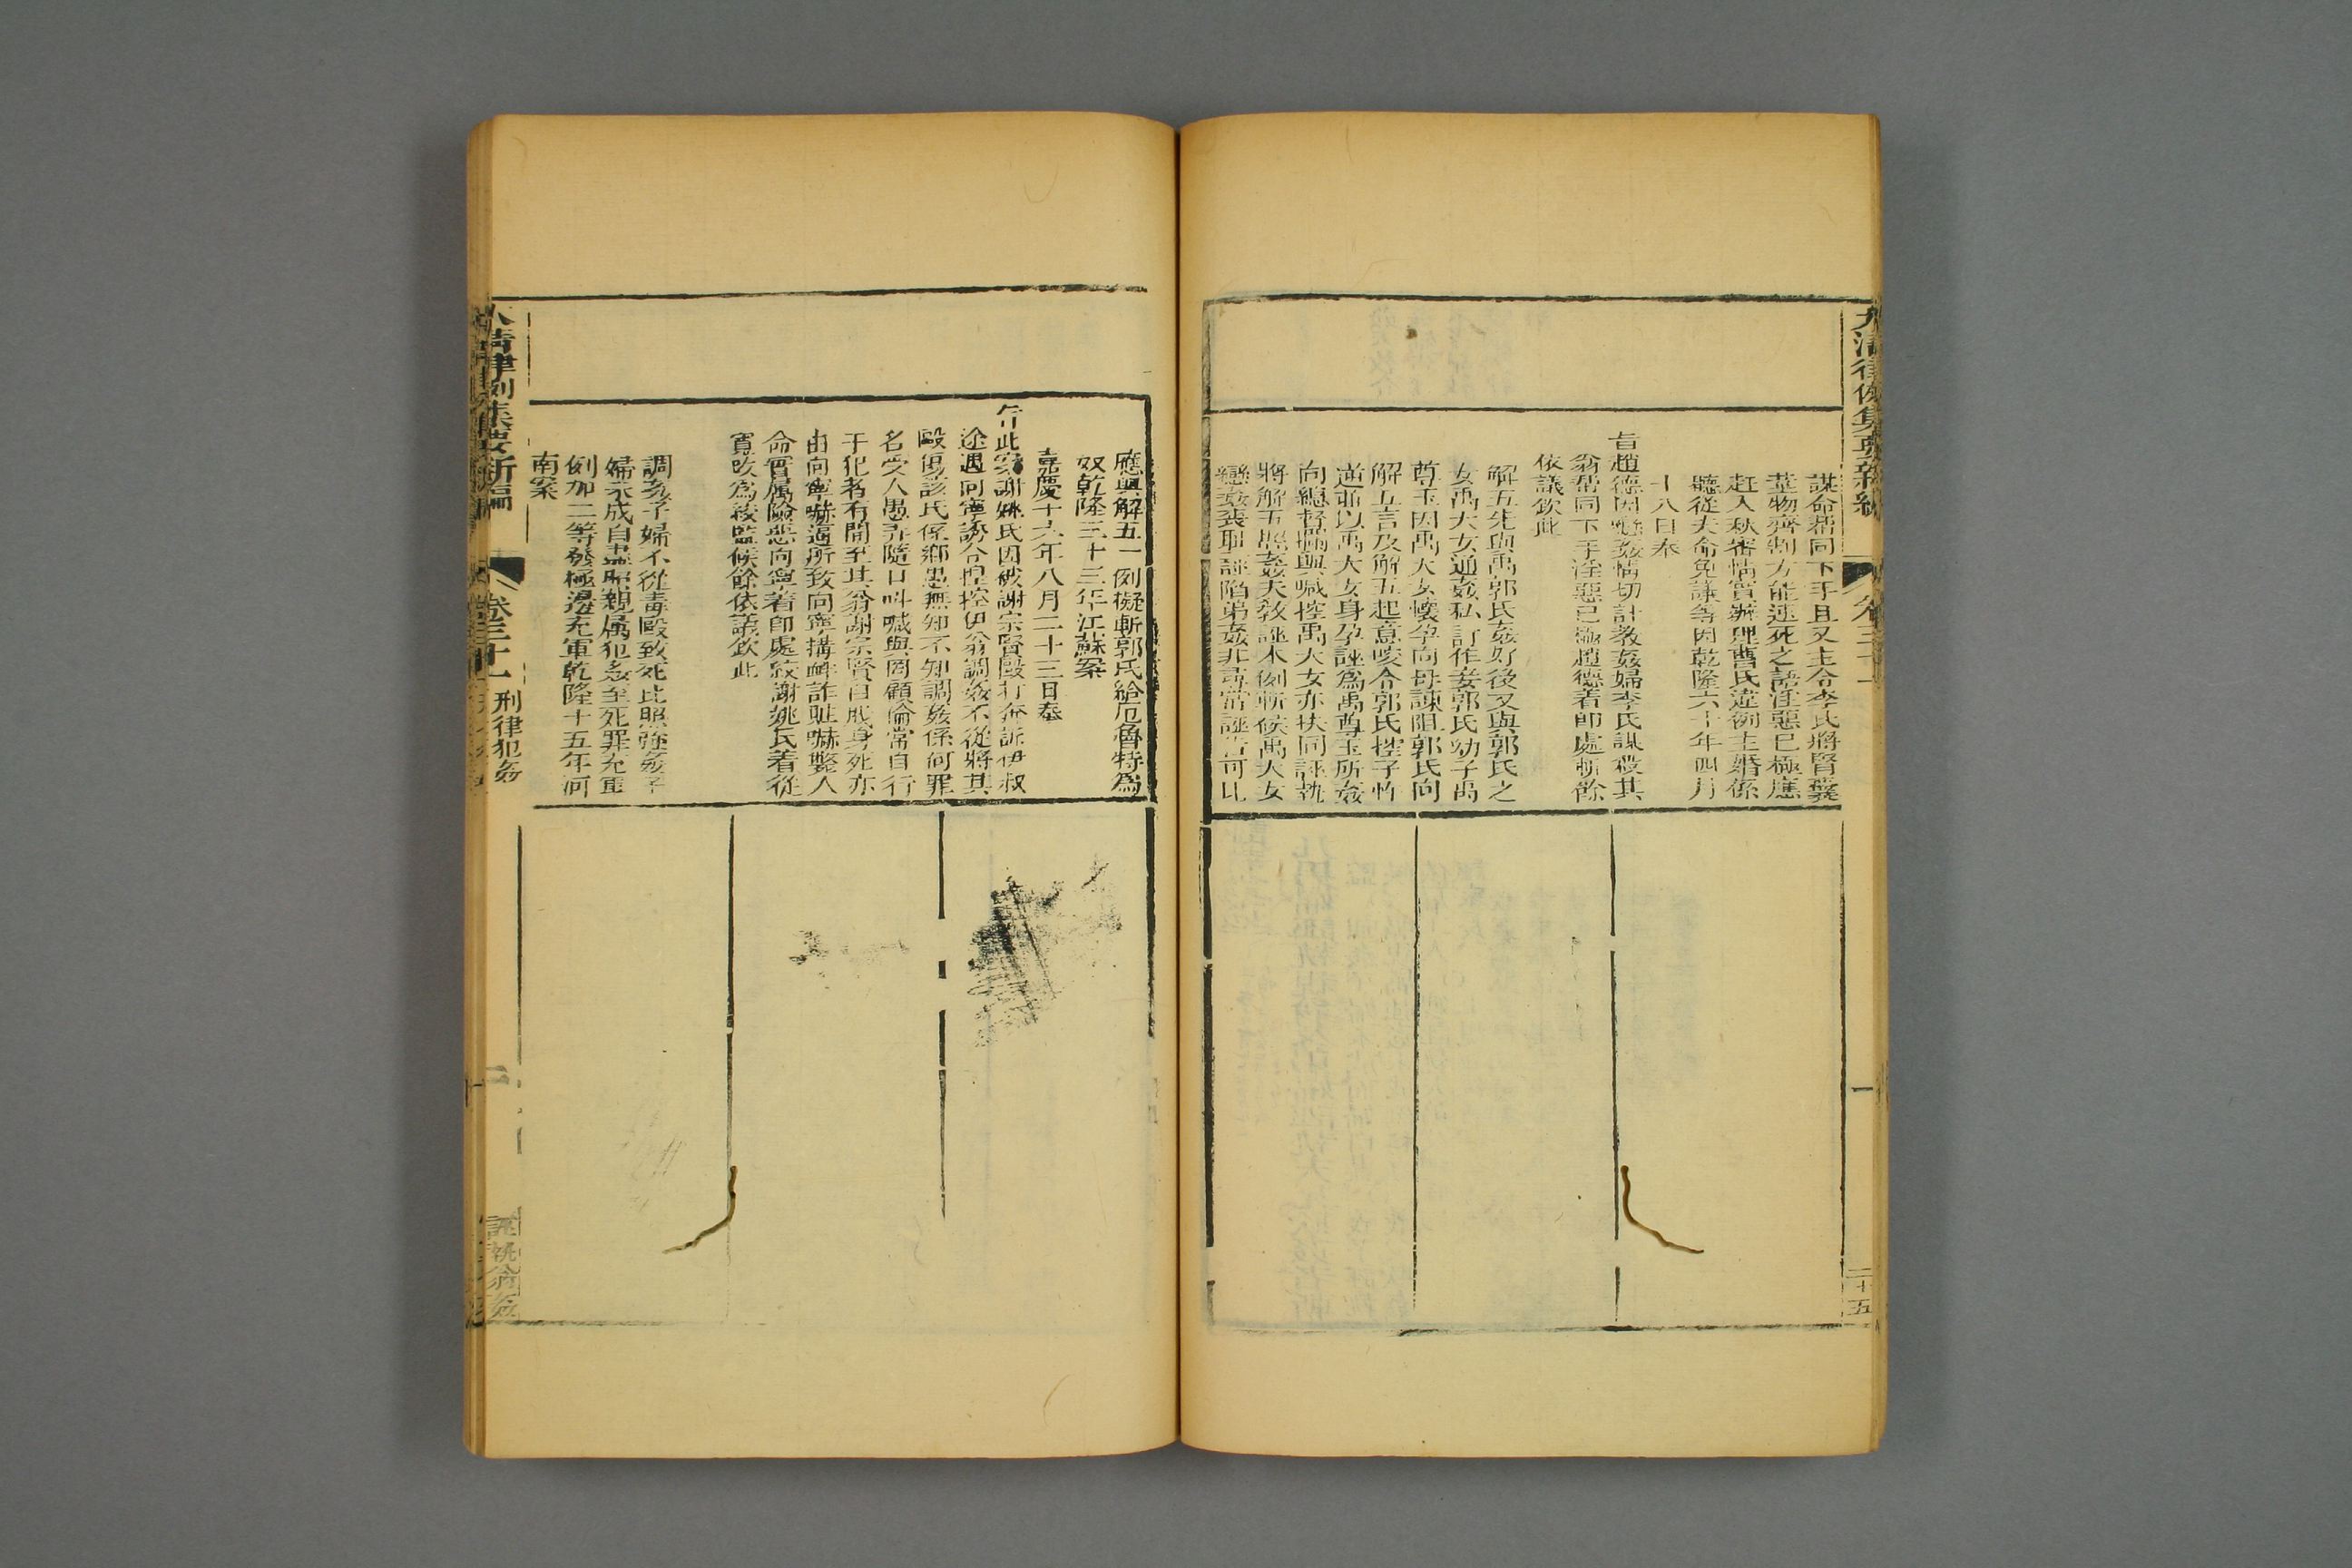 大清律例集要新編
卷三十一
一
二十五
謀命帮同下手且又主令李氏將腎囊
莖物齊割方能速死之語淫惡已極應
赶入秋審情實辦理曹氏違例主婚係
聽從夫命免議等因乾隆六十年四月
十八日奉
旨趙德因戀姦情切計教姦婦李氏謀殺其
翁帮同下手淫惡已極趙德着卽處斬餘
依議欽此
解五先與禹郭氏姦好後又與郭氏之
女禹大女通姦私訂作妾郭氏幼子禹
尊玉因禹大女懷孕向母諫阻郭氏向
解五言及解五起意唆令郭氏控子忤
逆並以禹大女身孕誣爲禹尊玉所姦
向總督攔輿喊控禹大女亦扶同誣執
將解五照姦夫教誣本例斬候禹大女
戀姦喪耻誣陷弟姦非尋常誣告可比
應與解五一例擬斬郭氏給厄魯特爲
奴乾隆三十三年江蘇案
嘉慶十六年八月二十三日奉
旨此案謝姚氏因被謝宗賢毆打奔訴伊叔
途遇向寧誘令捏控伊翁調姦不從將其
毆傷該氏係鄉愚無知不知調姦係何罪
名受人愚弄隨口叫喊與罔顧倫常自行
干犯者有間至其翁謝宗賢自戕身死亦
由向寧嚇逼所致向寧搆衅詐耻嚇斃人
命實屬險惡向寧着卽處絞謝姚氏着從
寬改爲絞監候餘依議欽此
調姦子婦不從毒毆致死比照强姦子
婦未成自盡照親屬犯姦至死罪充軍
例加二等發極邊充軍乾隆十五年河
南案
大清律例集要新編
卷三十一
刑律犯姦
二
誣執翁姦